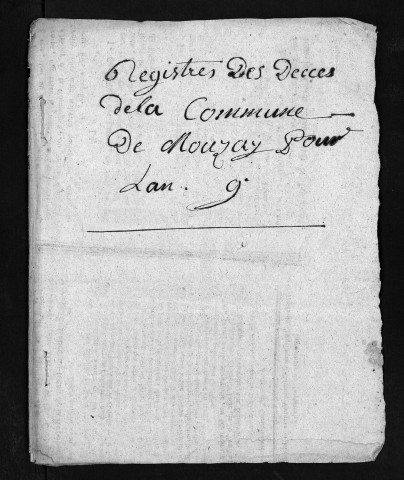 Registres Des Decces
dela Commune
De Mouzay Pour
Lan. 9.